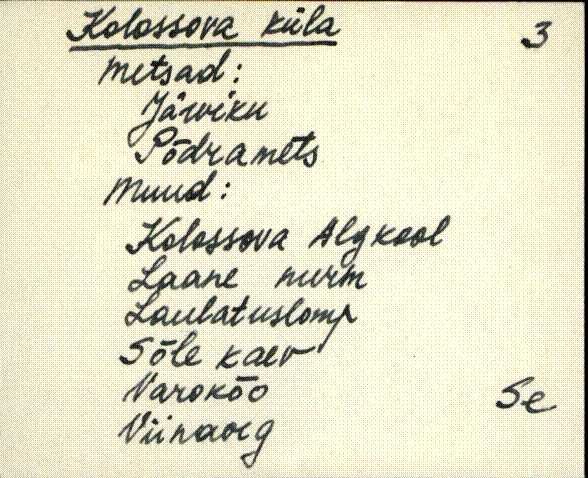 Kolossova küla 3
Metsad:
Järviku
Põdramets
Muud:
Kolossova Algkool
Laane nurm
Laulatuslomp
Sõle kaev
Varokõo
Se
Viinaorg